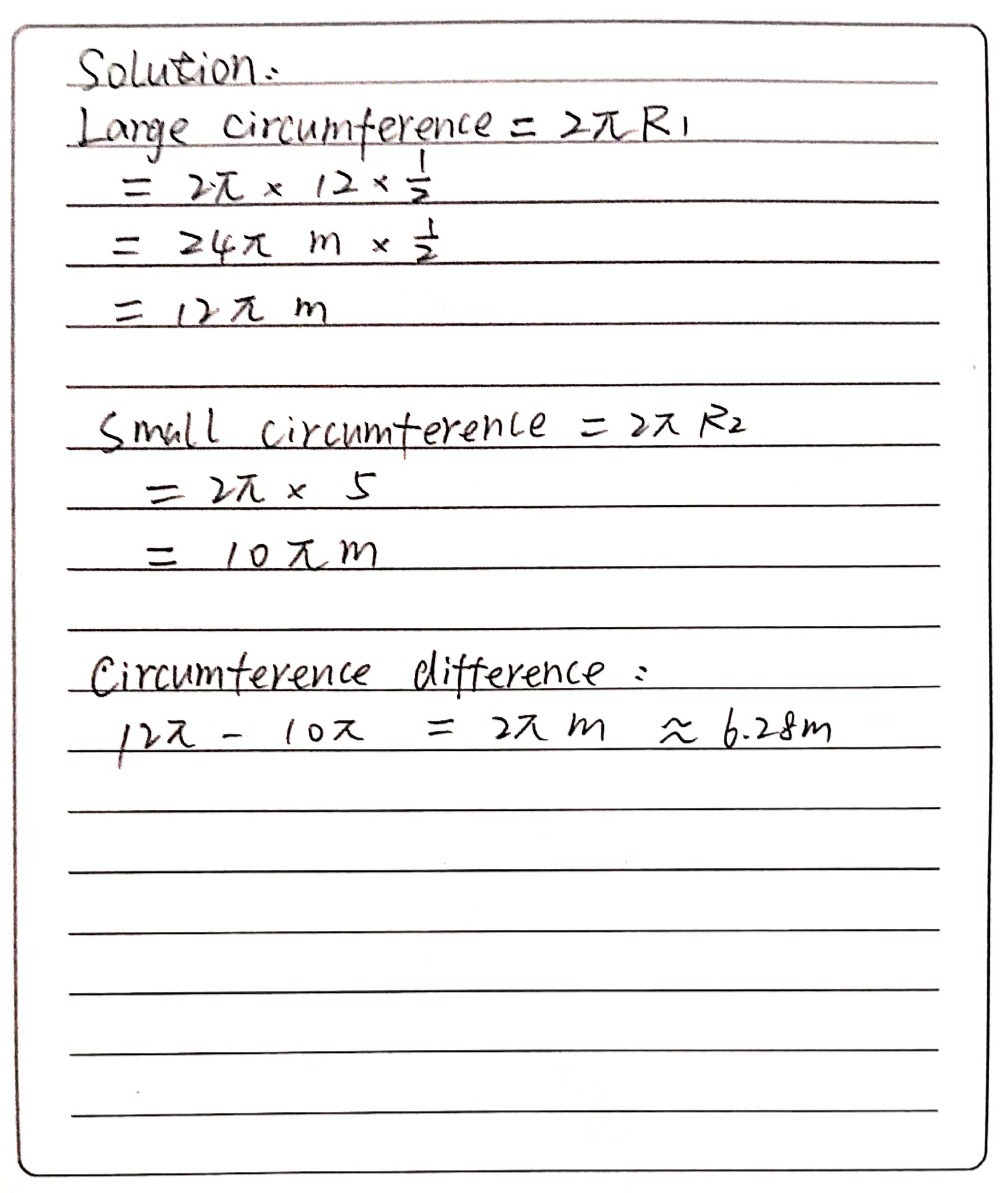 Solution:
Large circumference = 2π R₁
= 2π × 12 × 1/2
= 24π m × 1/2
= 12π m
Small circumference = 2π R₂
= 2π × 5
= 10π m
Circumference difference:
12π - 10π = 2π m ≈ 6.28m